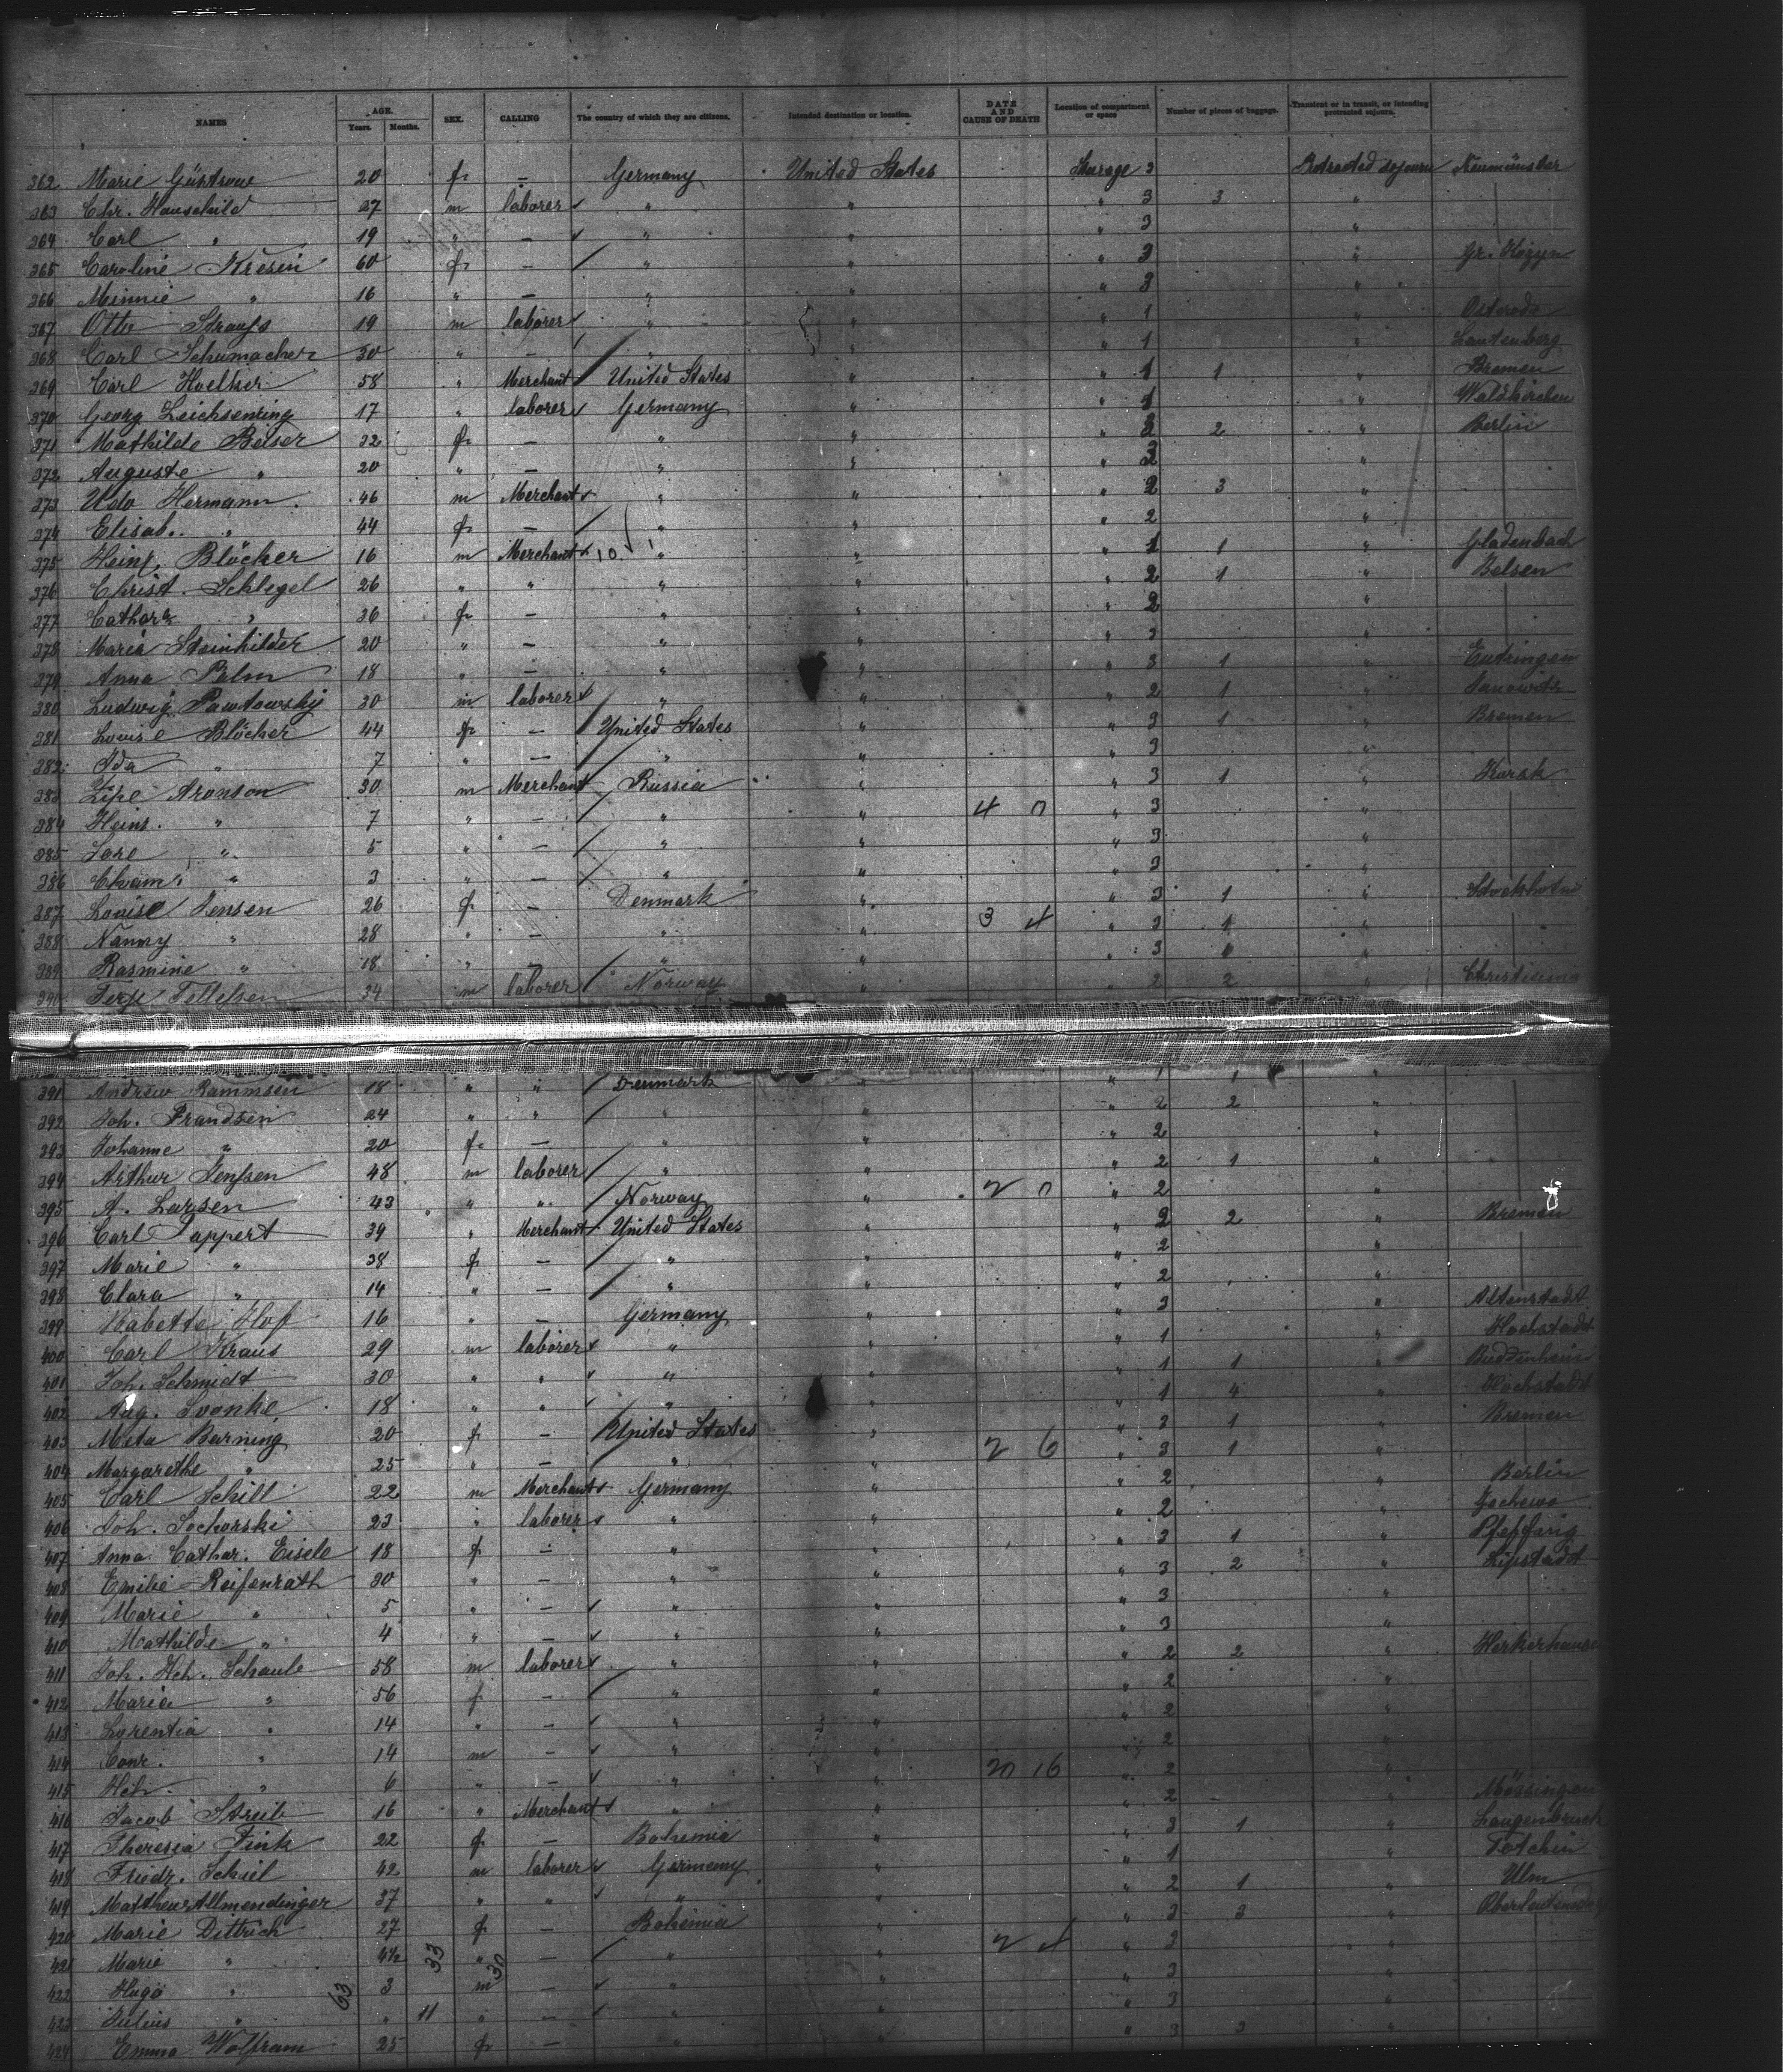 NAMES AGE. Years. Months. SEX. CALLING The country of which they are citizens. Intended destination or location. DATE AND CAUSE OF DEATH Location of compartment or space Number of pieces of baggage. Transient or in transit, or intending protracted sojourn.
362 Marie Güstrow 20 f — Germany United States Steerage 3 Protracted sojourn Neumünster
363 Chr. Hauschild 27 m laborer " " " 3 3 "
364 Carl " 19 " — " " " 3 "
365 Caroline Kresin 60 f — " " " 3 "
366 Minnie " 16 " — " " " 3 "
367 Otto Strauss 19 m laborer " " " 1 " Osterode
368 Carl Schumacher 30 " — " " " 1 " Lautenberg
369 Carl 58 " Merchant United States " " 1 1 " Bremen
370 Georg Leichsenring 17 " laborer Germany " " 1 " Waldkirchen
371 Mathilde Belser 32 f — " " " 2 2 " Berlin
372 Auguste " 20 " — " " " 2 "
373 Udo Hermann 46 m Merchant " " " 2 3 "
374 Elisab. " 44 f — " " " 2 "
375 Heinr. Blöcher 16 m Merchant 10 " " " 1 1 " Gladenbach
376 Christ. Schlegel 26 " " " " " 2 1 " Belsen
377 " 36 f — " " " 2 "
378 Maria Steinhilder 20 " — " " " 3 "
379 Anna Palm 18 " — " " " 3 1 " Eutringen
380 Ludwig Pawtowskij 30 m laborer " " " 2 1 " Janowitz
381 Louise Blöcher 44 f — United States " " 3 1 " Bremen
382 Ida " 7 " — " " " 3 "
383 Zipe Aronson 30 m Merchant Russia " " 3 1 "
384 Heins. " 7 " — " " 4 0 " 3 "
385 " 5 " — " " " 3 "
386 Cham " 3 " — " " " 3 "
387 Louise Jensen 26 f — Denmark " " 3 1 " Stockholm
388 Nanny " 28 " — " " 3 4 " 3 1 "
389 Rasmine " 18 " — " " " 3 "
390 Terje Tellefsen 34 m laborer Norway " " 2 2 " Christiania
391 Andrew Rammsen 18 " " Denmark " " 1 1 "
392 Joh. Frandsen 24 " " " " " 2 2 "
393 Johanne " 20 f — " " " 2 "
394 Arthur Jenssen 48 m laborer " " " 2 1 "
395 A. Larsen 43 " " Norway " 2 0 " 2 "
396 Carl Pappert 39 " Merchant United States " " 2 2 " Bremen
397 Marie " 38 f — " " " 2 "
398 Clara " 14 " — " " " 2 "
399 Babette Hof 16 " — Germany " " 3 " Altenstadt
400 Carl Kraus 29 m laborer " " " 1 " Hochstadt
401 Joh. Schmidt 30 " " " " " 1 1 " Buddenheim
402 Aug. Svonke 18 " " " " " 1 4 " Hochstadt
403 Meta Barning 20 f — United States " " 3 1 " Bremen
404 Margarethe " 25 " — " " 2 6 " 3 1 "
405 Carl Schill 22 m Merchant Germany " " 2 " Berlin
406 Joh. Sochorski 23 " laborer " " " 2 "
407 Anna Cathar. Eisele 18 f — " " " 3 1 "
408 Emilie Reifenrath 30 " — " " " 3 2 " Lipstadt
409 Marie " 5 " — " " " 3 "
410 Mathilde " 4 " — " " " 3 "
411 Joh. Hch. Schaule 58 m laborer " " " 2 2 "
412 Maria " 56 f — " " " 2 "
413 " 14 " — " " " 2 "
414 Conr. " 14 m — " " " 2 "
415 Hch. " 6 " — " " 20 16 " 2 "
416 Jacob Streib 16 " Merchant " " " 2 - " Mössingen
417 Theresia Fink 22 f — Bohemia " " 3 1 "
418 Friedr. Schiel 42 m laborer Germany " " 1 "
419 Mattheus Allmendinger 37 " " " " " 2 1 " Ulm
420 Marie Dittrich 27 f — Bohemia " " 3 3 "
421 Marie " 4½ " — " " 2 4 " 3 "
422 Hugo " 3 m — " " " 3 "
423 Julius " " 11 " — " " " 3 "
424 Emma Wolfram 25 f — " " " 3 3 "
33
30
63